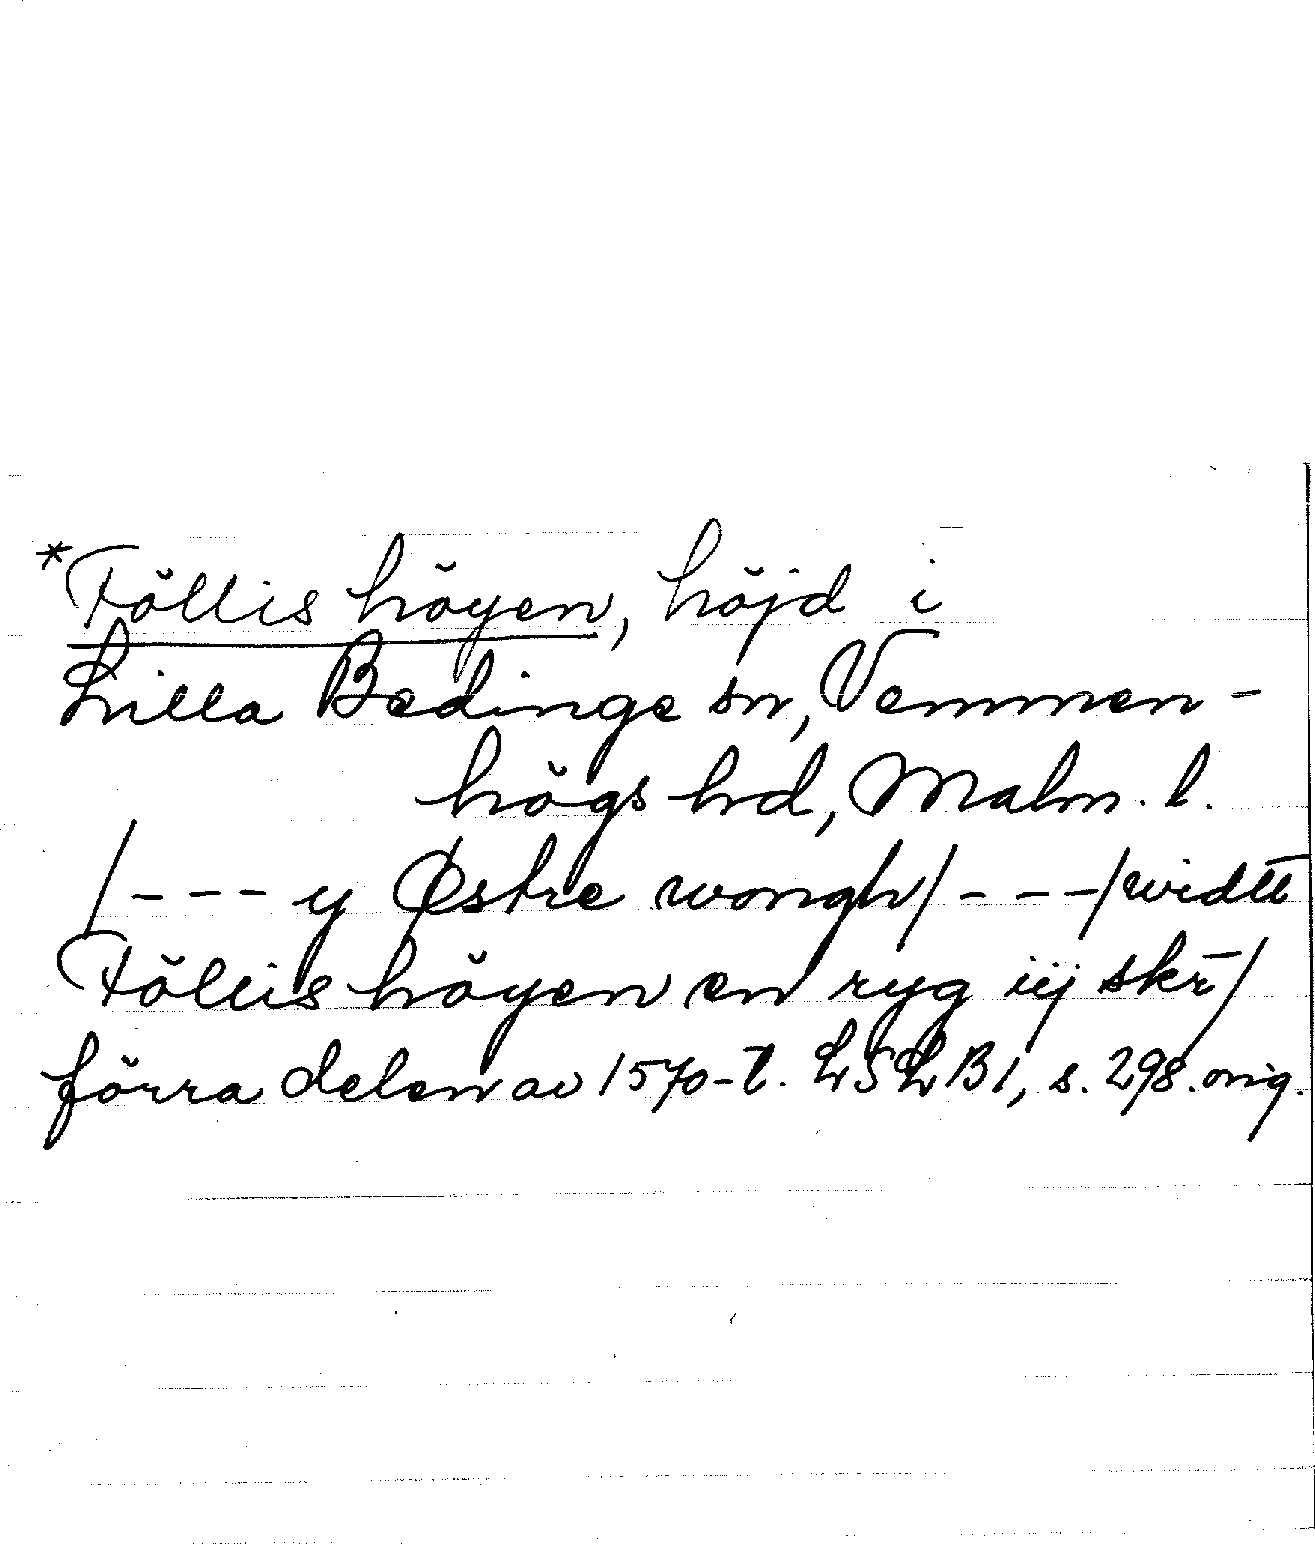 *Föllis höyen, höjd i
Lilla Bedinge sn, Vemmen-
högs hd, Malm. l.
/--- y Østre wongh/---/widtt
Föllis höyen en ryg iij skr/
förra delen av 1570-t. LSLB1, s. 298. orig.